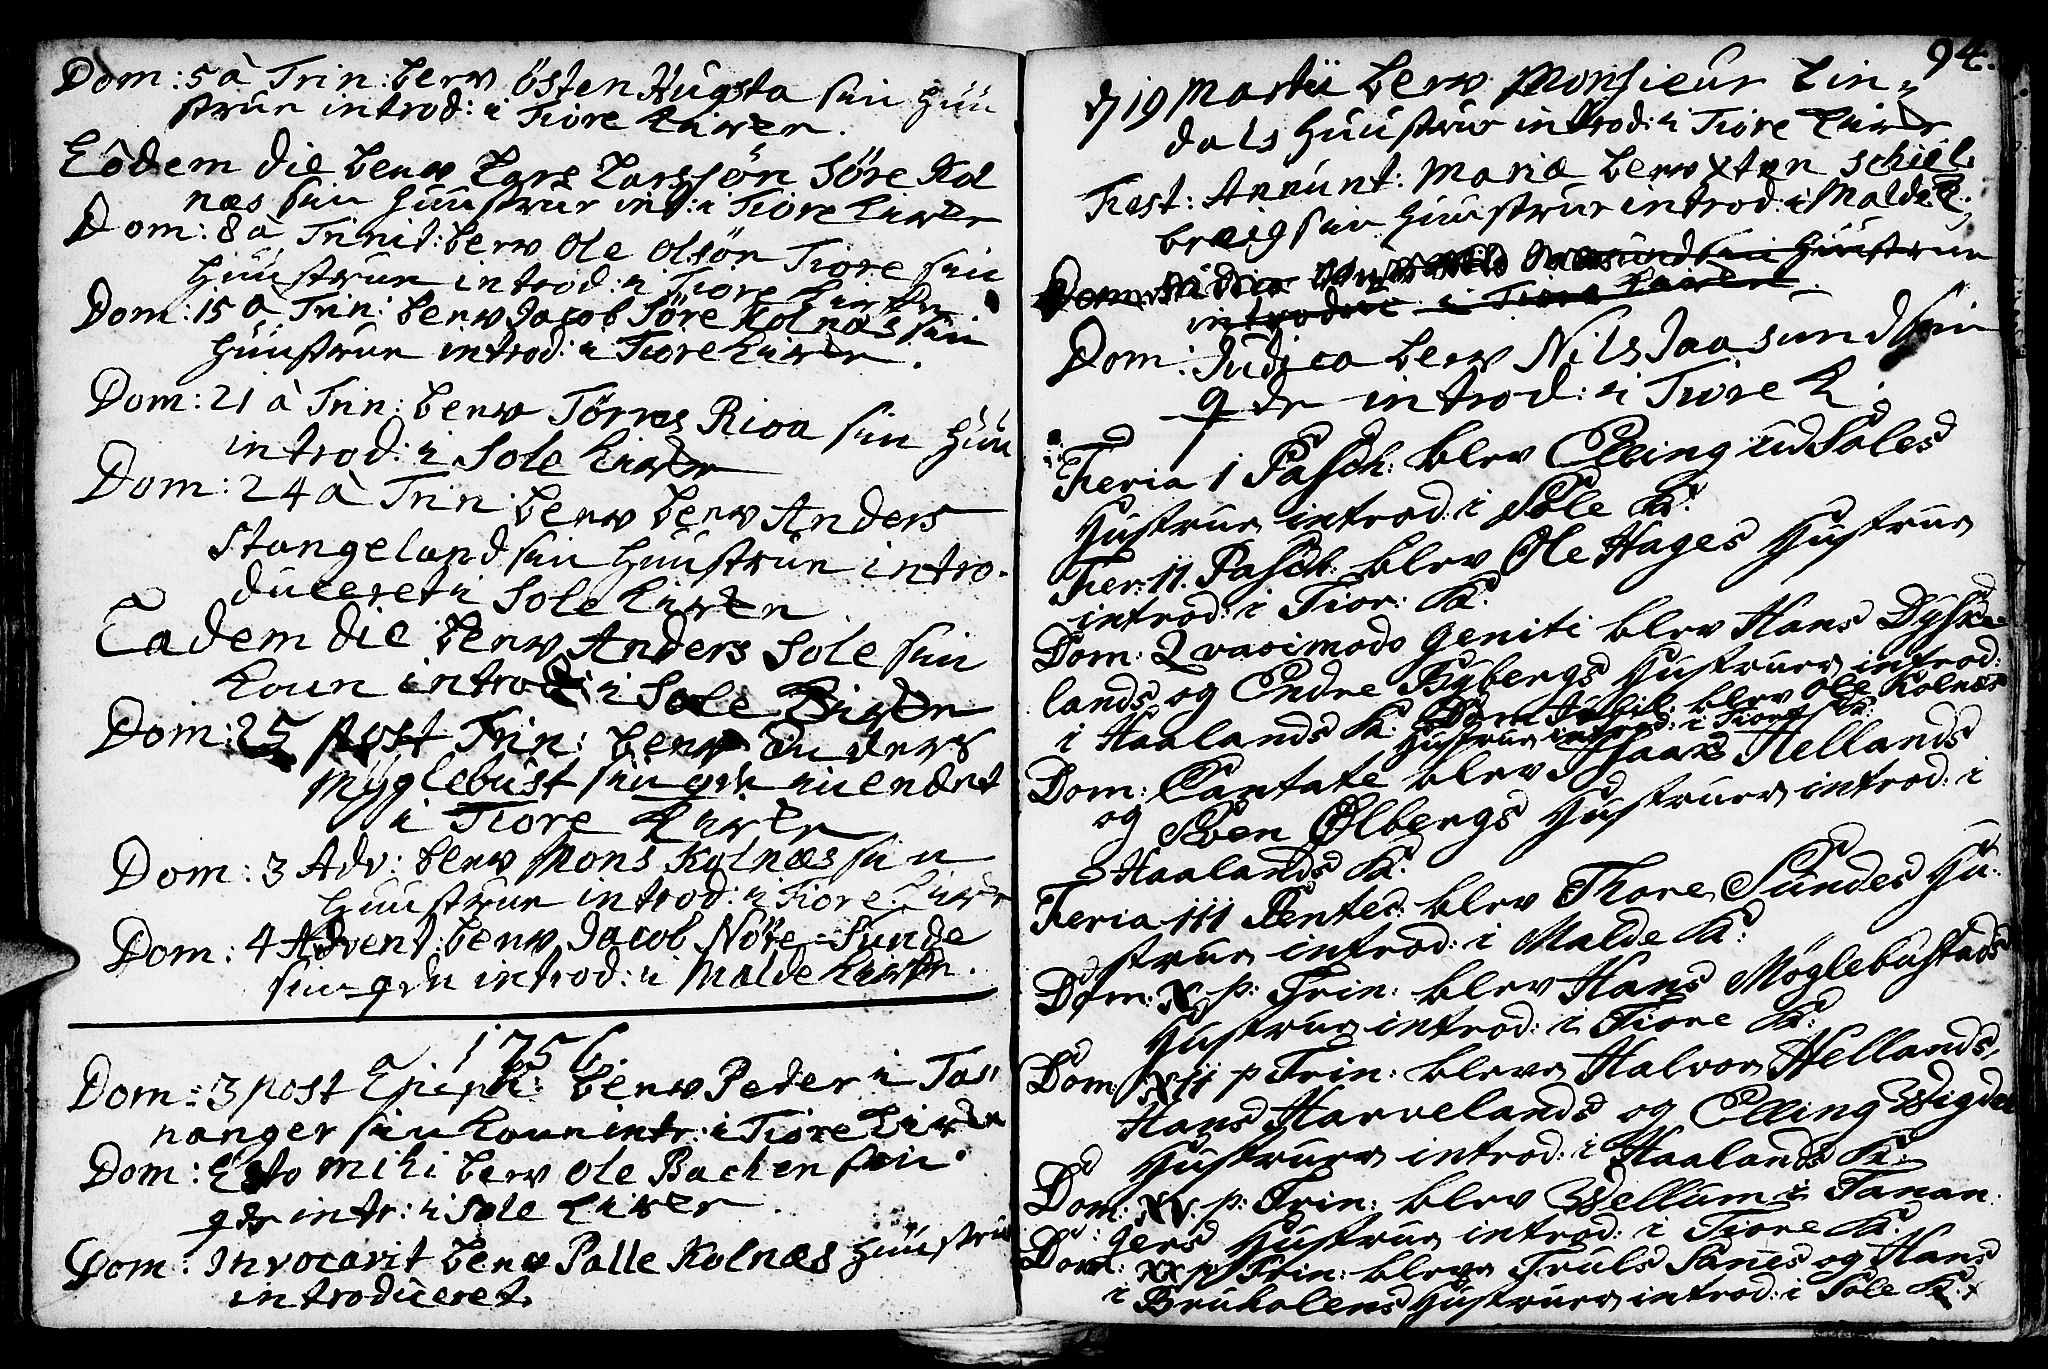 Dom: 5 à Trin: blew östen Hugsta sin Huu
strue introd: i Tiore kirke.
Eôdem die blew Lars Larssön Söre Kol
næs sin Huustrue int: i Tiore kirke
Dom: 8 à Trinit: blew Ole Olsön Tiore sin
Huustrue introd: i Tiore kirke
Dom: 15 à Trin: blew Jacob Söre Kolnæs sin
Huustrue introd: i Tiore kirke.
Dom: 21 à Trin: blew Törres Risa sin Huu
introd: i Sole kirke
Dom: 24 à Trin: blew blew Anders
Stangeland sin Huustrue intro-
duceret i Sole kirke
Eadem die blew Anders Sole sin
koun introd: i Sole kirke
Dom: 25 post Trin: blew
Myglebust sin qde
i Tiore kirke
Dom: 3 Adv: blew Mons Kolnæs sin
Huustrue introd: i Tiore kirke
Dom: 4 Advent: blew Jacob Nöre-Sunde
sin qde introd: i Malde kirke.
1756
Dom: 3 post Epiph: blew Peder i Ta-
nanger sin koun intr: i Tiore kirke
Dom: Esto mihi blew Ole Bachen sin
qde intr: i Sole kirke.
Dom: Invocavit blew Palle Kolnæs Huustrue
introduceret.
94.
d 19 Martii blew Monsieur Lin-
dals Huustrue introd: i Tiore kirke
Fest: Annunt: Mariæ blew Xten Schiel
bræig sin Huustrue introd: i Malde K.
Dom: sin Huustrue
introduc: i Tiore kirke.
Dom: Judica blew Nils Jaasund sin
qde introd: i Tiore K:
Feria 1 Pasch: blev Elling ud Soles
Hustrue introd: i Sole K:
Fer: 11. Pasch: blev Ole Hages Hustrue
introd: i Tior: K:
Dom: Qvasimodo Geniti blev Hans Dyske
lands og Endre Bybergs Hustruer introd:
i Haalands K: Dom Jubil: blev Ole Kolnæs
Hustrue introd: i Tiore K:
Dom: Cantate blev Isaac Hellands
og Sven Ølbergs Hustruer introd: i
Haalands K:
Feria 111 Pentec: blev Thore Sundes Hu-
strue introd: i Malde K:
Dom: X p: Trin: blev Hans Møglebustads
Hustrue introd: i Tiore K:
Dom: X11 p Trin: bleve Halvor Hellands,
Hans Harvelands og Elling Wigdel
Hustruer introd: i Haalands K:
Dom: XV. p: Trin: blev Wellum i Tanan-
gers Hustrue introd: i Tiore K:
Dom: XX p Trin: bleve Truls Sanes og Hans
i Brukolens Hustruer introd: i Sole K: